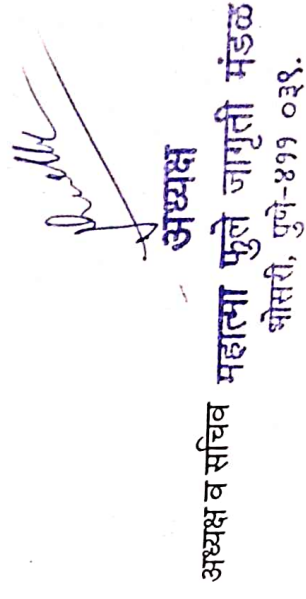 अध्यक्ष
अध्यक्ष व सचिव महात्मा फुले जागृती मंडळ
भोसरी, पुणे-४११ ०३९.